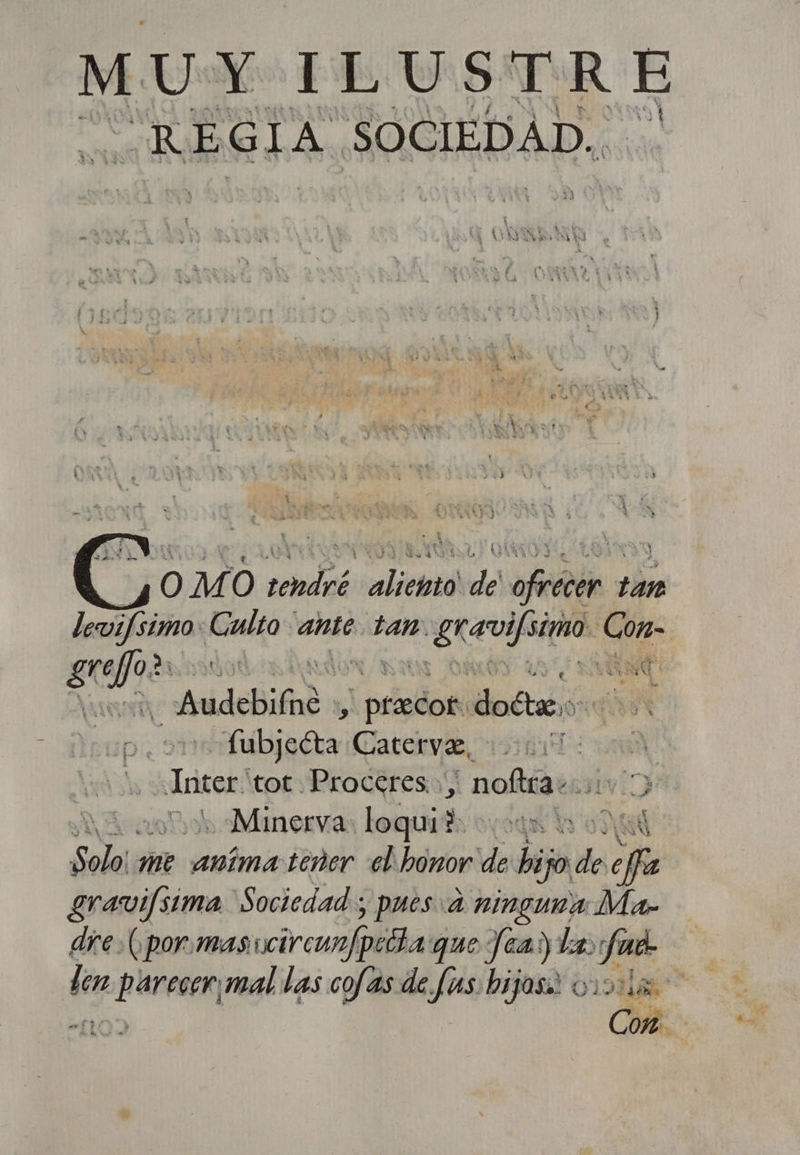 MUY ILUSTRE
REGIA SOCIEDAD.
COMO tendré aliento de ofrecer tan
leviſsimo Culto ante tan graviſsimo Con-
greſſo?
Audebiſnè, præcor doctæ
ſubjecta Catervæ,
Inter tot Proceres, noſtra
Minerva loqui?
Solo me anima tener el honor de hijo de eſſa
graviſsima Sociedad; pues à ninguna Ma-
dre (por mas circunſpecta que ſea) la ſue-
len parecer mal las coſas de ſus hijos.
Con